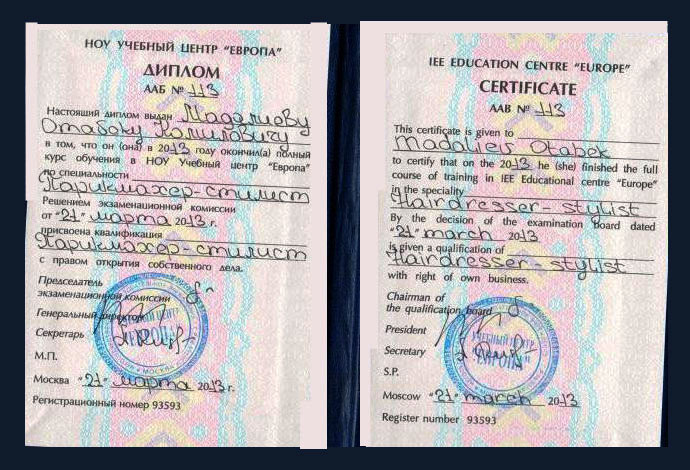 НОУ УЧЕБНЫЙ ЦЕНТР "ЕВРОПА"
ДИПЛОМ
ААБ № 113
Настоящий диплом выдан Мадалиеву
Отабеку Комиловичу
в том, что он (она) в 2013 году окончил(а) полный
курс обучения в НОУ Учебный центр "Европа"
по специальности
Парикмахер-стилист
Решением экзаменационной комиссии
от "21" марта 2013 г.
присвоена квалификация
Парикмахер-стилист
с правом открытия собственного дела.
Председатель
экзаменационной комиссии
Генеральный директор
Секретарь
М.П.
Москва "21" марта 2013 г.
Регистрационный номер 93593
IEE EDUCATION CENTRE "EUROPE"
CERTIFICATE
AAB № 113
This certificate is given to
Madaliev Otabek
to certify that on the 2013 he (she) finished the full
course of training in IEE Educational centre "Europe"
in the speciality
Hairdresser-stylist
By the decision of the examination Board dated
"21" march 2013
is given a qualification of
Hairdresser-stylist
with right of own business.
Chairman of
the qualification board
President
Secretary
S.P.
Moscow "21" march 2013
Register number 93593
УЧЕБНЫЙ ЦЕНТР
"ЕВРОПА"